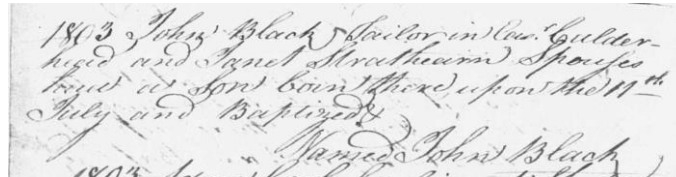 1803 John Black Tailor in Eas.r Culder-
head and Janet Strathearn Spouses
have a Son born there upon the 11th
July and Baptized
Named John Black
1803